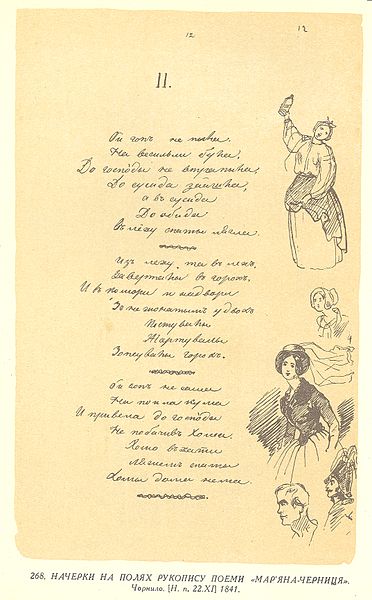 12
12
II.
Ой гопъ не пыла.
На весильли була,
До господы не втрапыла,
До сусида зайшла,
а въ сусиды
До обиды
Въ леху спаты лягла.
Изъ леху, та въ лехъ,
Завертила въ горохъ,
И въ комори и надвори
Зъ нежонатымъ удвохъ
Пустувала
Жартувала
Зопсувала горохъ.
Ой гопъ не сама
Напоила кума
И привела до господы
Не побачивъ Хома.
Хомо въ хати
Лягаемъ спаты
Хомы дома нема.
268. НАЧЕРКИ НА ПОЛЯХ РУКОПИСУ ПОЕМИ «МАР'ЯНА-ЧЕРНИЦЯ».
Чорнило. [Н. п. 22.XI] 1841.